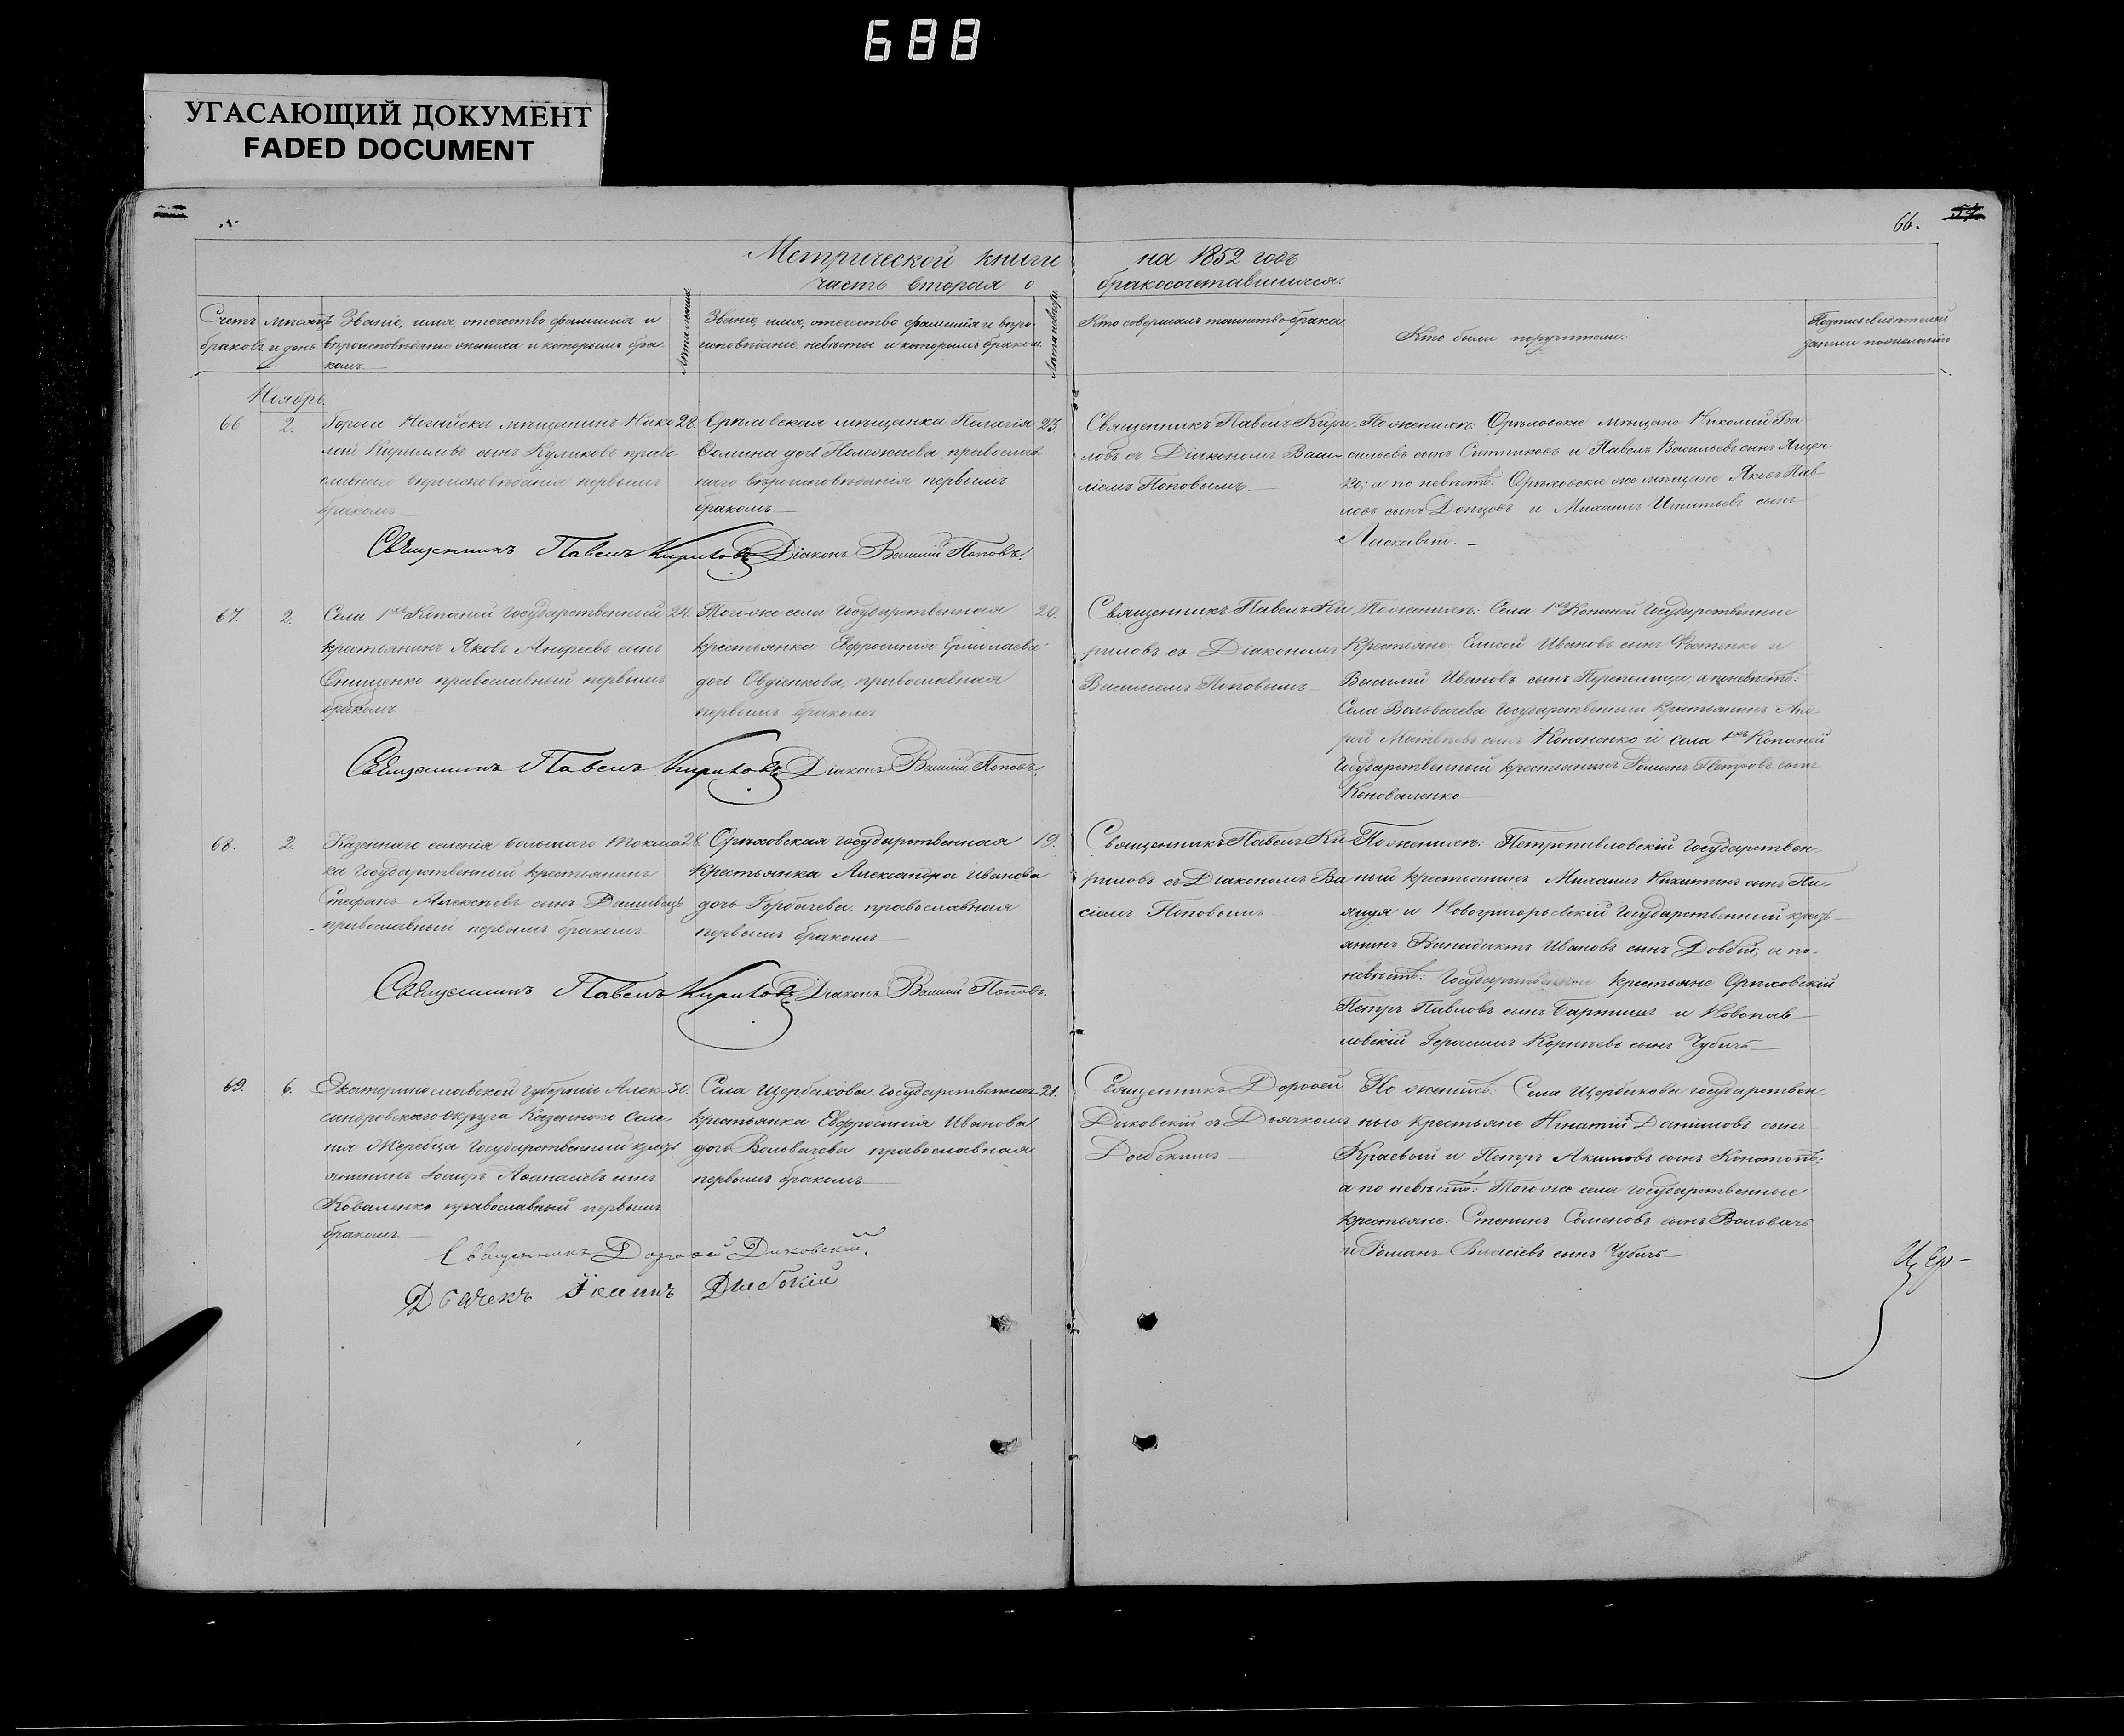 688
УГАСАЮЩИЙ ДОКУМЕНТ
FADED DOCUMENT
66.
Метрической книги на 1852 годъ
часть вторая о бракосочетавшихся.
Счетъ браковъ
мѣсяцъ и день
Званіе, имя, отечество фамилія и
вѣроисповѣданіе жениха и которымъ бра-
комъ.
Лѣта жениха
Званіе, имя, отечество фамилія и вѣро-
исповѣданіе невѣсты и которымъ бракомъ.
Лѣта невѣсты
Кто совершалъ таинство брака
Кто были поручители.
Подпись свидѣтелей
записи по желанію
Ноябрь.
66
2.
Города Ногайска мѣщанинъ Нико
лай Кириловъ сынъ Куликовъ право
славнаго вѣроисповѣданія первымъ
бракомъ
28.
Орѣховская мѣщанка Пелагія
Ѳомина дочь Полежаева православ
наго вѣроисповѣданія первымъ
бракомъ
23.
Священникъ Павелъ Кири-
ловъ съ Діакономъ Васи
ліемъ Поповымъ
По женихѣ: Орѣховскіе мѣщане Николай Ва
сильевъ сынъ Ситниковъ и Павелъ Васильевъ сынъ
ко; а по невѣстѣ: Орѣховскіе же мѣщане Яковъ Пав
ловъ сынъ Донцовъ и Михаилъ Игнатьевъ сынъ
Священникъ Павелъ Кириловъ Діаконъ Василій Поповъ.
67.
2.
Села 1хъ Копаней Государственный
крестьянинъ Яковъ Андреевъ сынъ
Онищенко православный первымъ
бракомъ
24.
Того же села Государственная
крестьянка Евфросинія Ермолаева
дочь Овдіенкова, православная
первымъ бракомъ
20.
Священникъ Павелъ Ки
риловъ съ Діакономъ
Василіемъ Поповымъ
По женихѣ: Села 1хъ Копаней Государственные
Крестьяне: Елисей Ивановъ сынъ Фостенко и
Василій Ивановъ сынъ Перепелица; а по невѣстѣ:
Села Вольвачева Государственный крестьянинъ Анд
рей Матвѣевъ сынъ Кононенко и села 1хъ Копаней
Государственный крестьянинъ Романъ Петровъ сынъ
Коноваленко
Священникъ Павелъ Кириловъ Діаконъ Василій Поповъ.
68.
2.
Казеннаго селенія большаго Токма
ка Государственный крестьянинъ
Стефанъ Алексѣевъ сынъ
православный первымъ бракомъ
Орѣховская государственная
крестьянка Александра Иванова
дочь Горбачева, православная
первымъ бракомъ
19.
Священникъ Павелъ Ки
риловъ съ Діакономъ Ва
сіемъ Поповымъ
По женихѣ: Петропавловскій Государствен-
ный крестьянинъ Михаилъ Никитинъ сынъ
и Новогригорьевскій Государственный кресть
янинъ Ивановъ сынъ Довбій; а по
невѣстѣ: Государственные крестьяне Орѣховскій
Петръ Павловъ сынъ и Новопав
ловскій Герасимъ Корнѣевъ сынъ Чубичъ
Священникъ Павелъ Кириловъ Діаконъ Василій Поповъ.
69.
6.
Екатеринославской Губерніи Алек-
сандровскаго Округа Казеннаго Селе
нія Жеребца Государственный кресть
янинъ Іосифъ Аѳанасіевъ сынъ
Коваленко православный первымъ
бракомъ
30.
Села Щербакова Государственная
крестьянка Евфросинія Иванова
дочь Вольвачева православная
первымъ бракомъ
21.
Священникъ Дороѳей
Диковскій съ Дьячкомъ
По женихѣ: Села Щербакова государствен-
ные крестьяне Игнатій Даниловъ сынъ
Краевый и Петръ Акимовъ сынъ Конотопъ;
а по невѣстѣ: Того же села государственные
крестьяне: Степанъ Семеновъ сынъ Вольвачъ
и Романъ Власіевъ сынъ Чубичъ
Священникъ Дороѳей Диковскій.
Дьячекъ